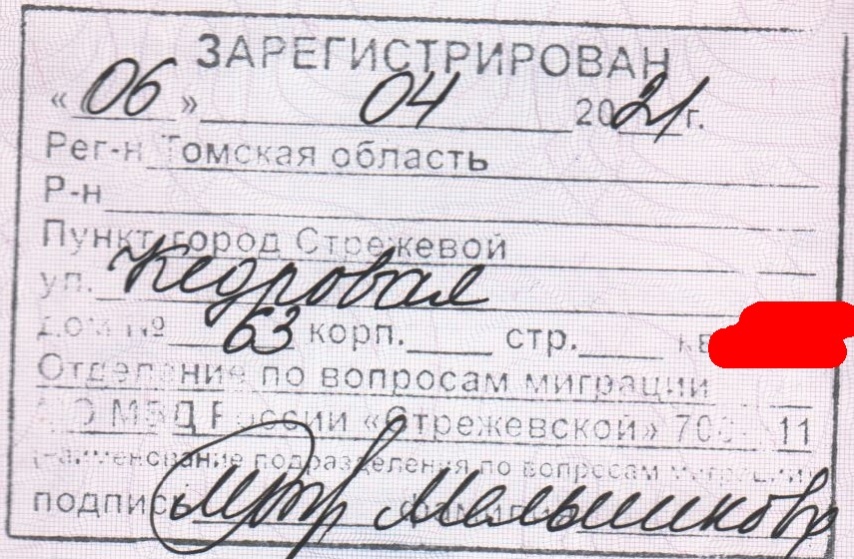 ЗАРЕГИСТРИРОВАН
«06» 04 2021г.
Рег-н Томская область
Р-н
Пункт город Стрежевой
ул. Кедровая
дом № 63 корп. стр. кв
Отделение по вопросам миграции
МО МВД России «Стрежевской» 11
(наименование подразделения по вопросам миграции)
подпись